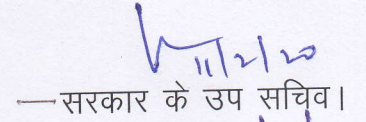 11/2/20
—सरकार के उप सचिव।